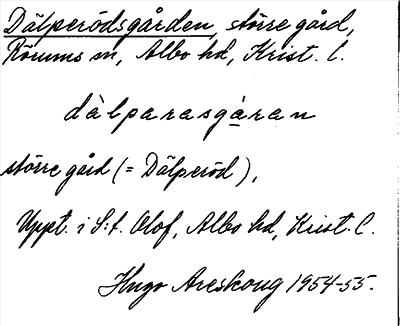 Dälperödsgården, större gård,
Rörums sn, Albo hd, Krist. l.
dàlparasgàran
större gård (= Dälperöd),
Uppt. i S:t. Olof, Albo hd, Krist. l.
Hugo Areskoug 1954-55.